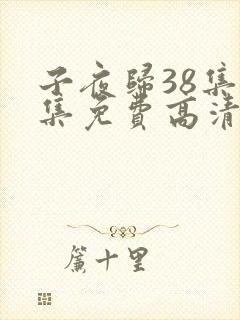 子夜歸38集
集免費高清
簾十里